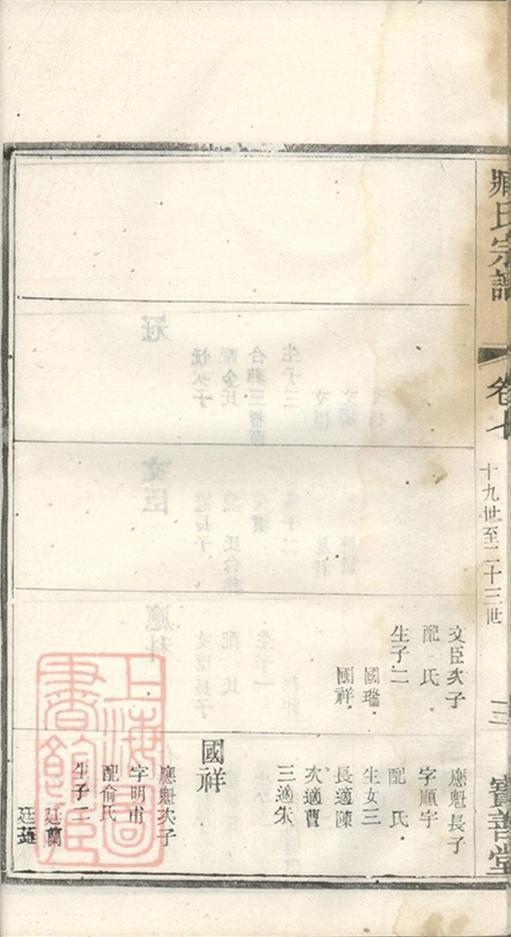 臧氏宗譜
卷七
十九世至二十三世
三
寶善堂
文臣次子
配 氏
生子二
國瑞
國祥
應魁長子
字順宇
配 氏
生女三
長適陳
次適曹
三適朱
國祥
應魁次子
字明甫
配俞氏
生子二
廷蘭
上海圖書館藏